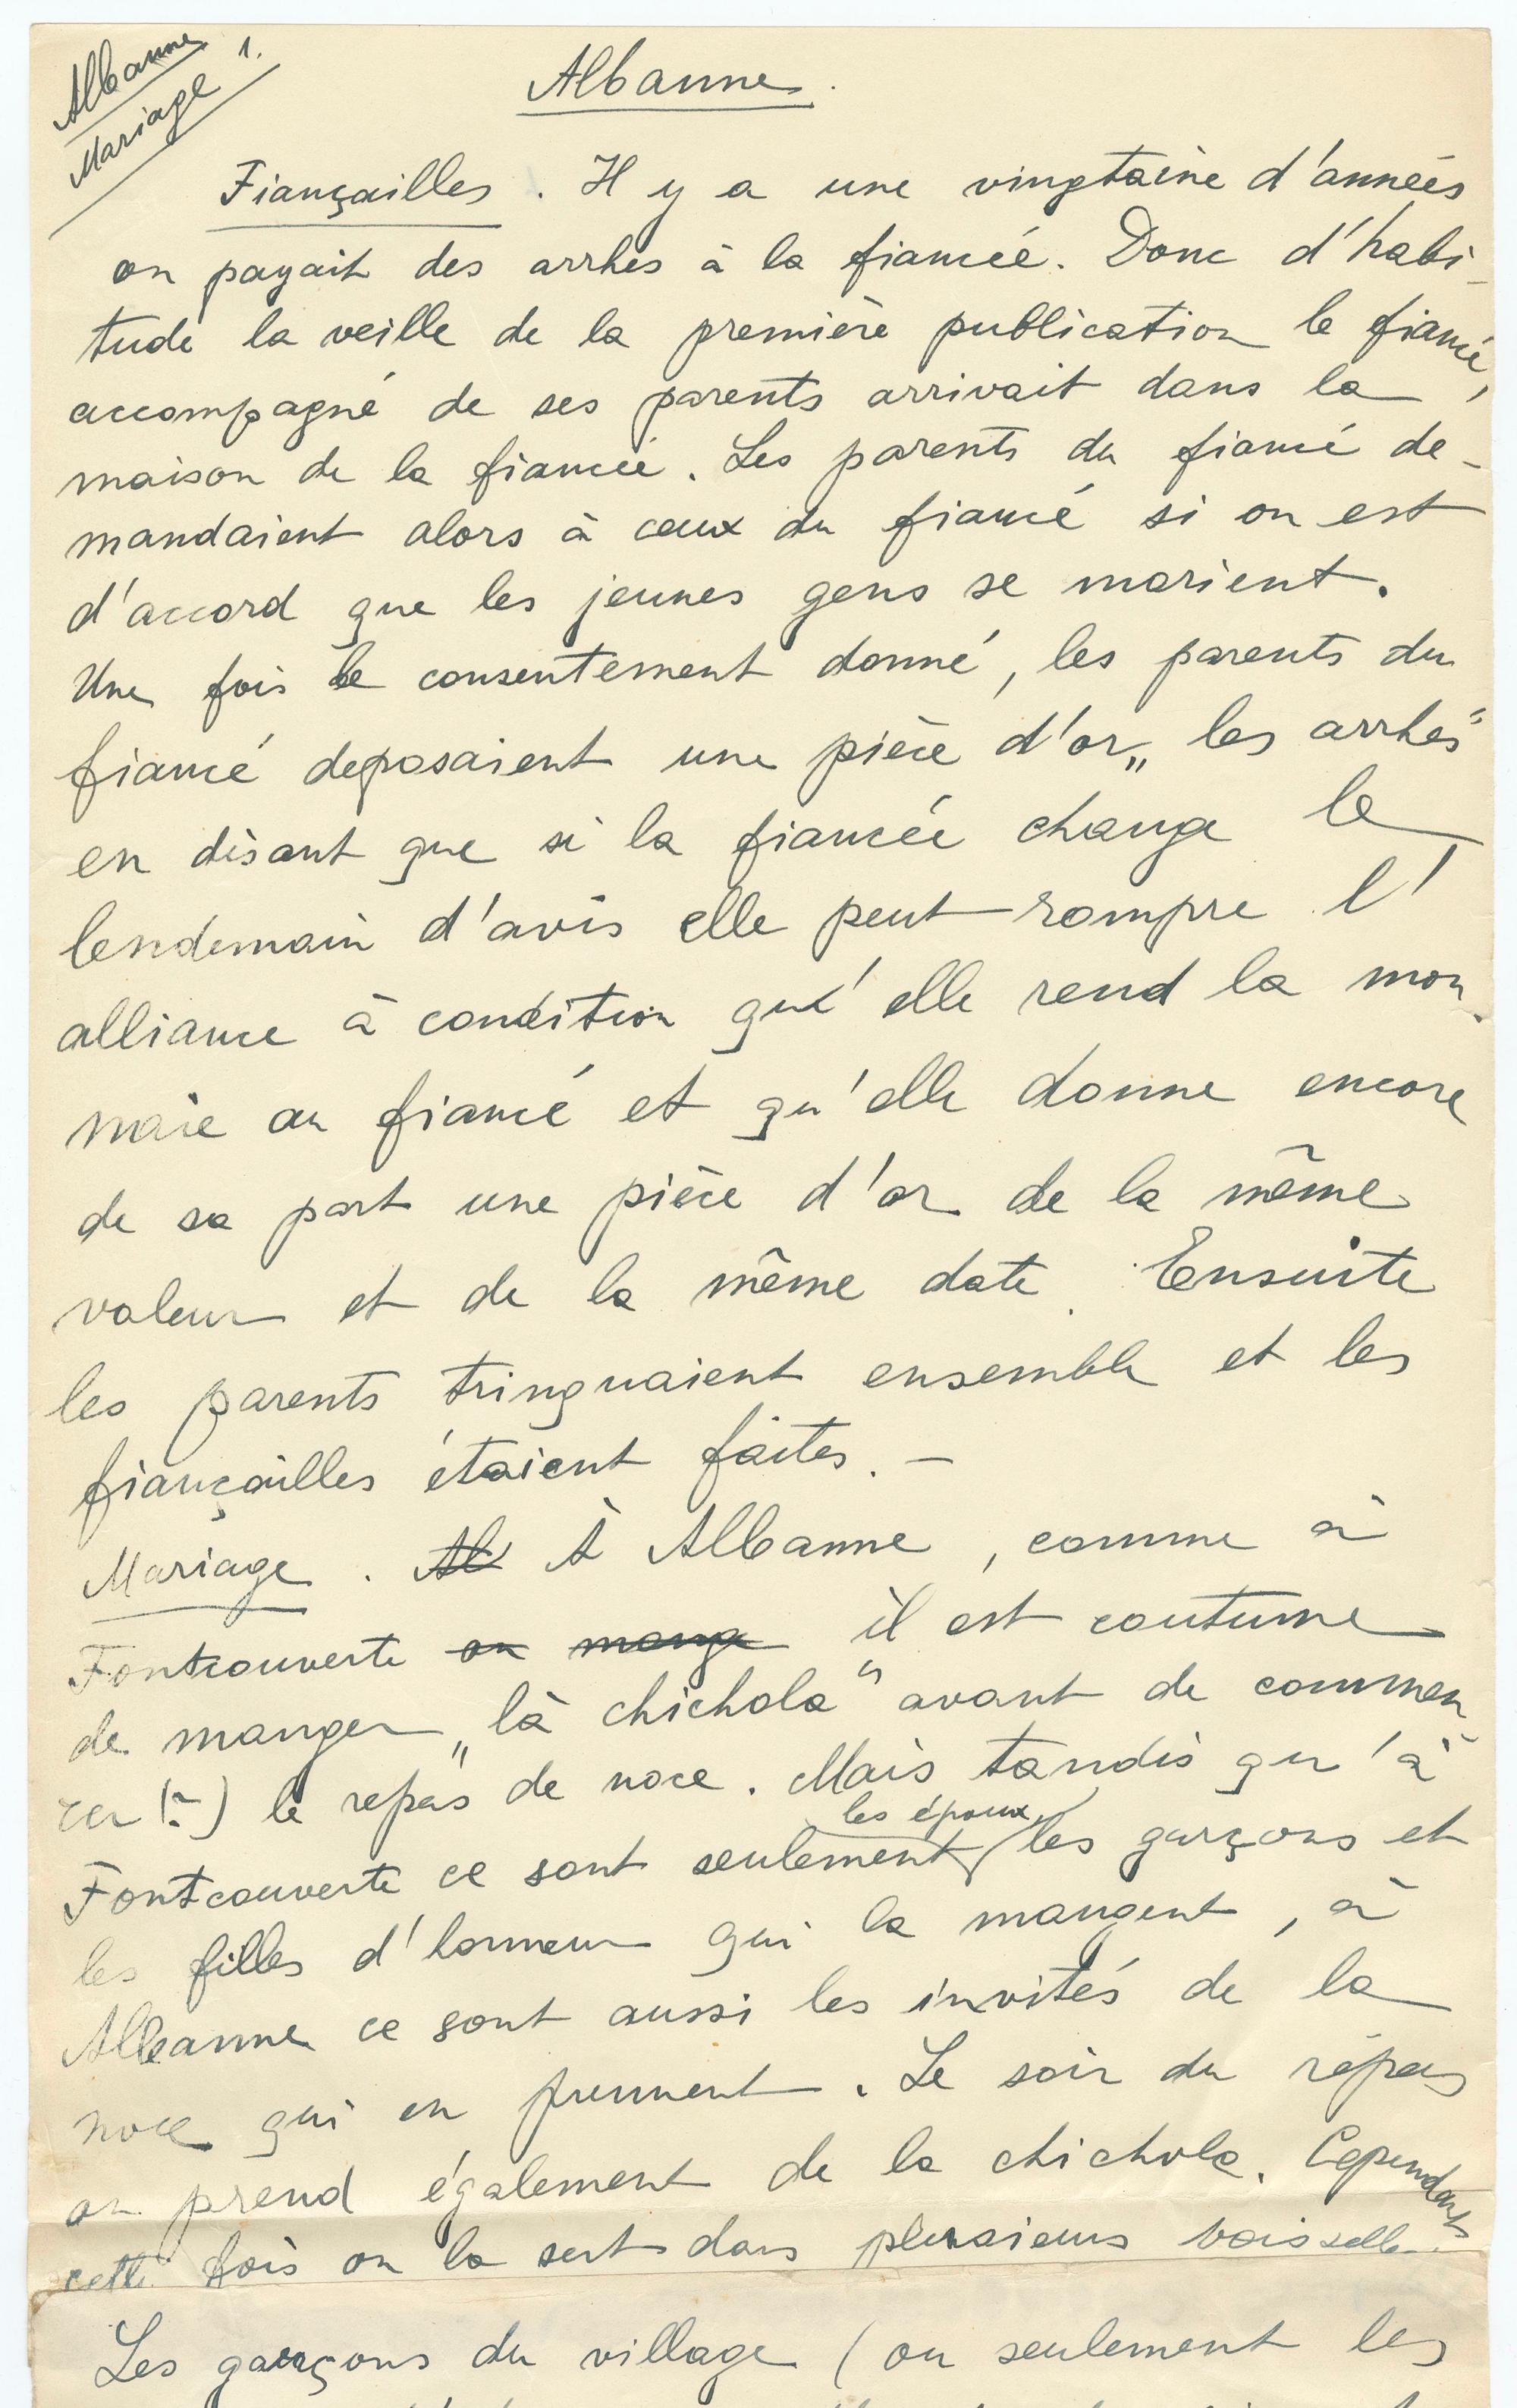 Albanne
Mariage 1.
Albanne.
Fiançailles. Il y a une vingtaine d'années
on payait des arrhes à la fiancée. Donc d'habi-
tude la veille de la première publication le fiancé,
accompagné de ses parents arrivait dans la
maison de la fiancée. Les parents du fiancé de-
mandaient alors à ceux du fiancé si on est
d'accord que les jeunes gens se marient.
Une fois le consentement donné, les parents du
fiancé deposaient une pièce d'or „les arrhes“
en disant que si la fiancée change le
lendemain d'avis elle peut rompre l'
alliance à condition qu'elle rend la mon-
naie au fiancé et qu'elle donne encore
de sa part une pièce d'or de la même
valeur et de la même date. Ensuite
les parents trinquaient ensemble et les
fiançailles étaient faites. –
Mariage. Al À Albanne, comme à
Fontcouverte on mange il est coutume
de manger „là chichola“ avant de commen-
cer (?) le repas de noce. Mais tandis qu'à
Fontcouverte ce sont seulement les époux, les garçons et
les filles d'honneur qui la mangent, à
Albanne ce sont aussi les invités de la
noce qui en prennent. Le soir du répas
on prend également de la chichola. Cependant
cette fois on la sert dans plusieurs vaisselle.
Les garçons du village (ou seulement les